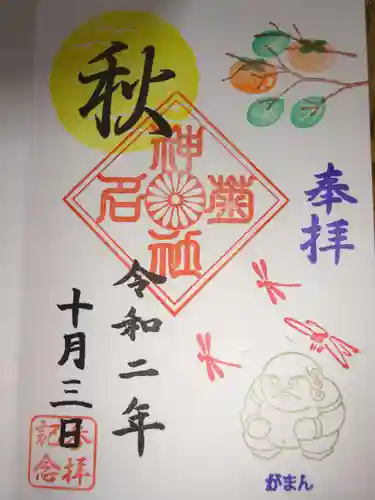 奉拝
秋
菊名神社
令和二年
十月三日
参拝記念
がまん